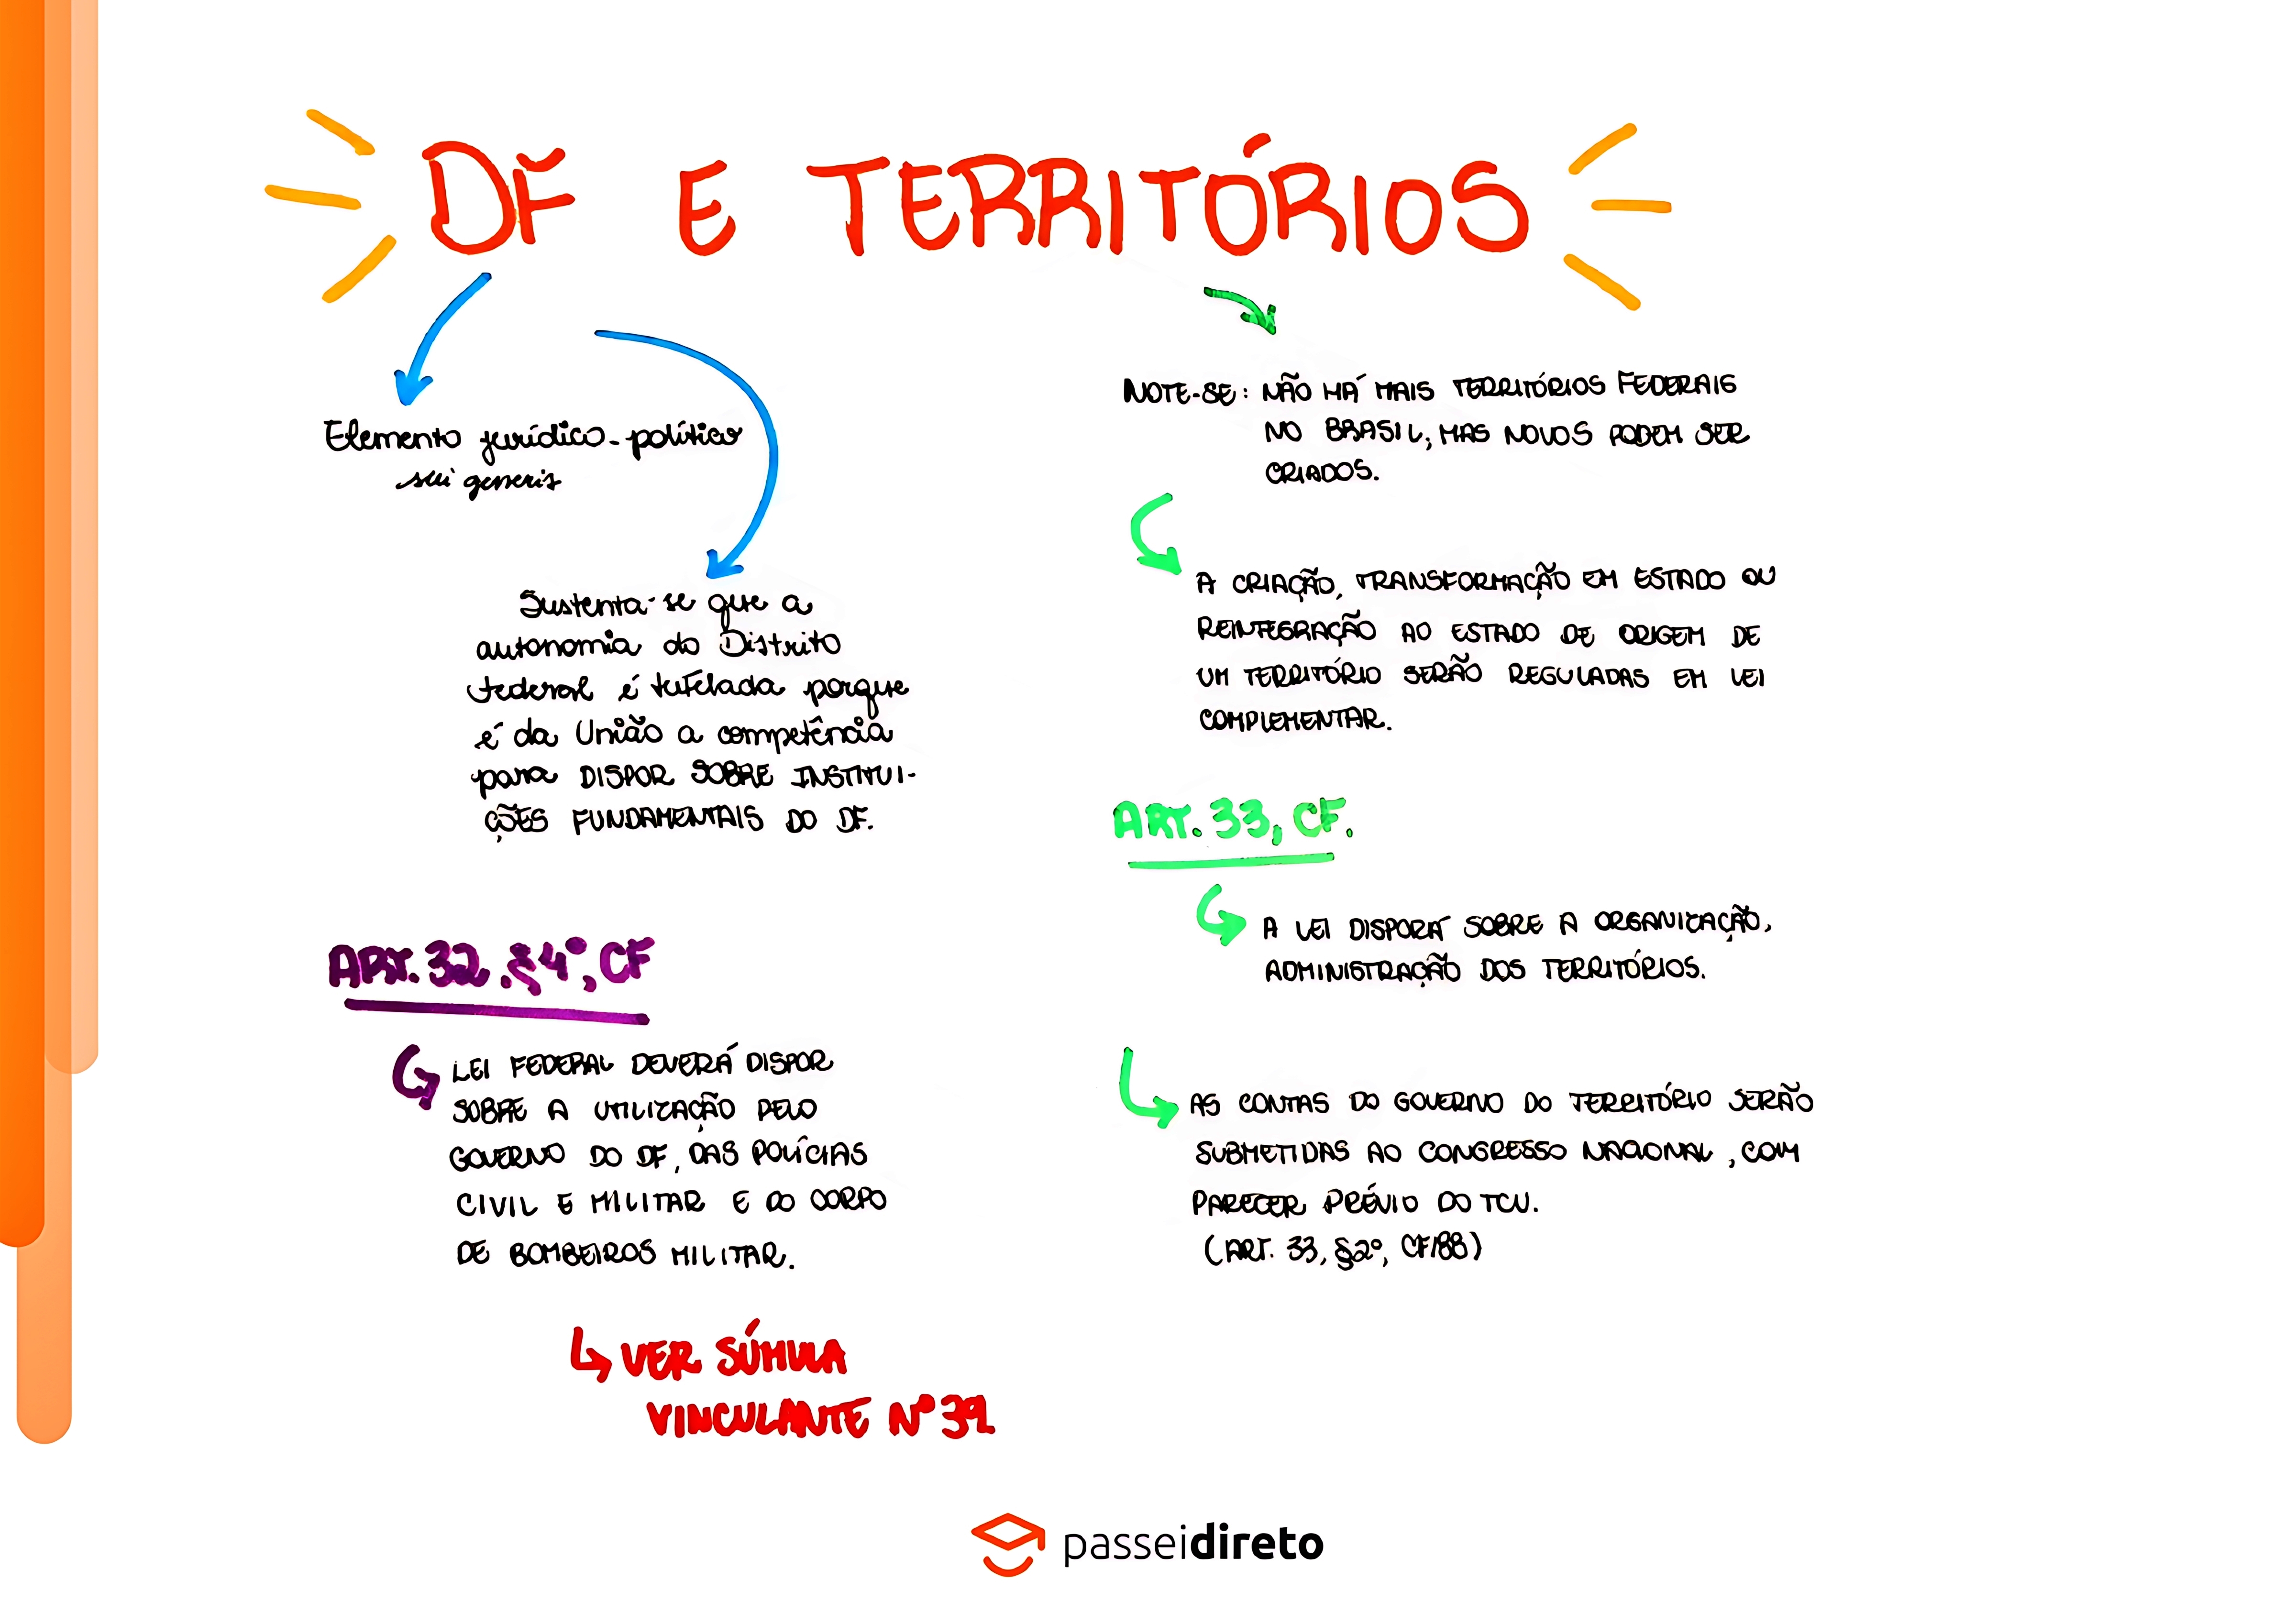 DF E TERRITÓRIOS
Elemento jurídico-político
sui generis
Sustenta-se que a
autonomia do Distrito
Federal é tutelada porque
é da União a competência
para DISPOR SOBRE INSTITUI-
ÇÕES FUNDAMENTAIS DO DF.
ART. 32, §4°, CF
LEI FEDERAL DEVERÁ DISPOR
SOBRE A UTILIZAÇÃO PELO
GOVERNO DO DF, DAS POLÍCIAS
CIVIL E MILITAR E DO CORPO
DE BOMBEIROS MILITAR.
VER SÚMULA
VINCULANTE N° 39.
NOTE-SE: NÃO HÁ MAIS TERRITÓRIOS FEDERAIS
NO BRASIL, MAS NOVOS PODEM SER
CRIADOS.
A CRIAÇÃO, TRANSFORMAÇÃO EM ESTADO OU
REINTEGRAÇÃO AO ESTADO DE ORIGEM DE
UM TERRITÓRIO SERÃO REGULADAS EM LEI
COMPLEMENTAR.
ART. 33, CF.
A LEI DISPORÁ SOBRE A ORGANIZAÇÃO,
ADMINISTRAÇÃO DOS TERRITÓRIOS.
AS CONTAS DO GOVERNO DO TERRITÓRIO SERÃO
SUBMETIDAS AO CONGRESSO NACIONAL, COM
PARECER PRÉVIO DO TCU.
(ART. 33, §2°, CF/88)
passeidireto